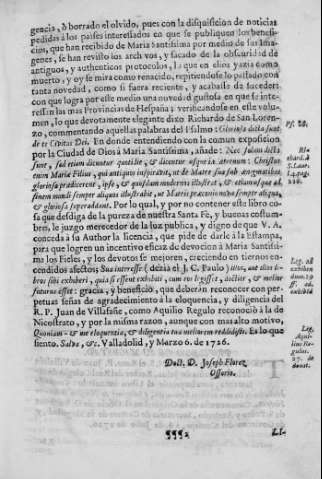 gencia, ò borrado el olvido, pues con la disquisicion de noticias
pedidas à los países interessados en que se publiquen los benefi-
cios, que han recibido de Maria Santissima por medio de sus Ima-
genes, se han revisto los archivos, y sacado de la obscuridad de
antiguos, y authenticos protocolos, la que en ellos yazia como
muerto, y oy se mira como renacido, repitiendose lo passado con
tanta novedad, como si fuera reciente, y acabasse de suceder:
con que logra por este medio una novedad gustosa en que se inte-
ressan las tres Provincias de España; verificandose en este volu-
men, lo que devotamente elegante dixo Richardo de San Loren-
zo, commentando aquellas palabras del Psalmo: Gloriosa dicta sunt
de te Civitas Dei. En donde entendiendo con la comun exposicion
por la Ciudad de Dios à Maria Santissima, añade: Nec solum dicta
sunt, sed etiam dicuntur quotidie, & dicentur usque in æternum: Christus
enim Mariæ Filius, qui antiquos inspiravit, ut de Matre sua sub ænigmatibus
gloriosa prædicerent, ipse, & quosdam modernos illustrat, & etiam usque ad
finem mundi semper aliquos illustrabit, ut Matris præconiis nova semper aliqua,
& gloriosa superaddant. Por lo qual, y por no contener este libro co-
sa que desdiga de la pureza de nuestra Santa Fè, y buenas costum-
bres, le juzgo merecedor de la luz publica, y digno de que V. A.
conceda à su Author la licencia, que pide de darle à la Estampa,
para que logren un incentivo eficaz de devocion à Maria Santissi-
ma los Fieles, y los devotos se mejoren, creciendo en tiernos en-
cendidos afectos; Sua interesse (dezia el J. C. Paulo) jus, aut alios li-
bros sibi exhiberi, quia si essent exhibiti, cum eos legisset, doctior, & melior
futurus esset: gracia, y beneficio, que deberàn reconocer con per-
petuas señas de agradecimiento à la eloquencia, y diligencia del
R. P. Juan de Villafañe, como Aquilio Regulo reconociò à la de
Nicostrato, y por la misma razon, aunque con mas alto motivo,
Quoniam & me eloquentia, & diligentia tua meliorem reddidisti. Es lo que
siento. Salvo, &c. Valladolid, y Marzo 6. de 1726.
Doct. D. Joseph Florez
Ossorio.
Ps. 86.
Richard. à
S. Laur.
¶¶¶¶2
LI-